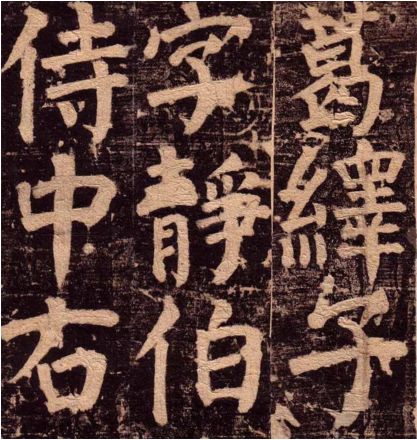 葛繹子
字靜伯
侍中右